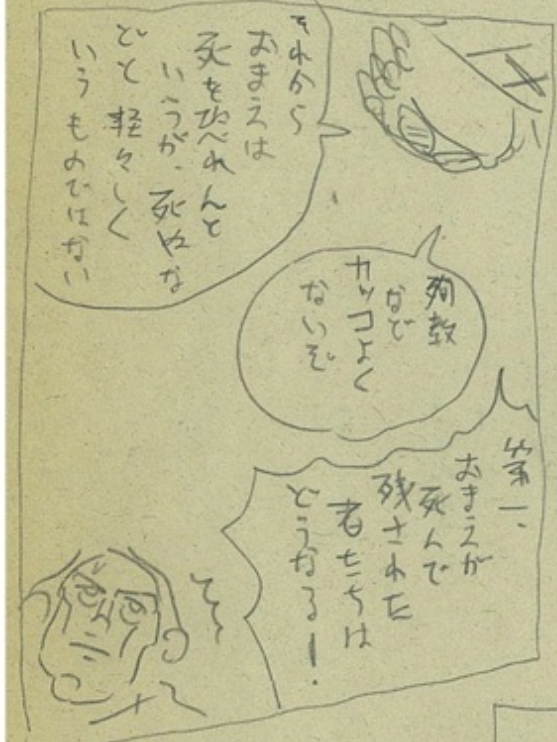 それから
おまえは
死を恐れんと
いうが、死ぬな
どと軽々しく
いうものではない
殉教
など
カッコよく
ないぞ
第一、
おまえが
死んで
残された
者たちは
どうなる!